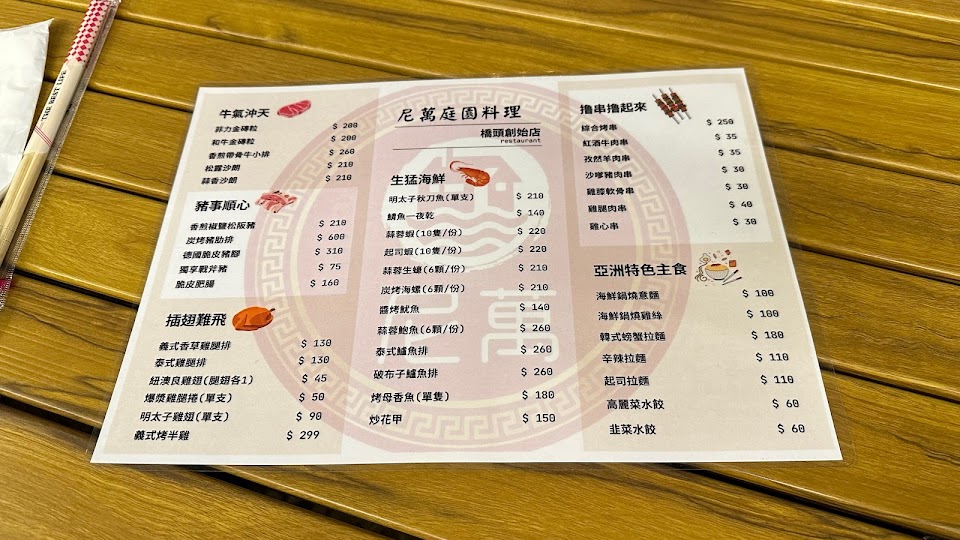 THE BEST LIFE
尼萬庭園料理
橋頭創始店
restaurant
牛氣沖天
菲力金磚粒 $ 200
和牛金磚粒 $ 200
香煎帶骨牛小排 $ 260
松露沙朗 $ 210
蒜香沙朗 $ 210
豬事順心
香煎椒鹽松阪豬 $ 210
炭烤豬肋排 $ 600
德國脆皮豬腳 $ 310
獨享戰斧豬 $ 75
脆皮肥腸 $ 160
插翅難飛
義式香草雞腿排 $ 130
泰式雞腿排 $ 130
紐澳良雞翅(腿翅各1) $ 45
爆漿雞腿捲(單支) $ 50
明太子雞翅(單支) $ 90
義式烤半雞 $ 299
生猛海鮮
明太子秋刀魚(單支) $ 210
鯖魚一夜乾 $ 140
蒜蓉蝦(10隻/份) $ 220
起司蝦(10隻/份) $ 220
蒜蓉生蠔(6顆/份) $ 210
炭烤海螺(6顆/份) $ 210
醬烤魷魚 $ 140
蒜蓉鮑魚(6顆/份) $ 260
泰式鱸魚排 $ 260
破布子鱸魚排 $ 260
烤母香魚(單隻) $ 180
炒花甲 $ 150
擼串擼起來
綜合烤串 $ 250
紅酒牛肉串 $ 35
孜然羊肉串 $ 35
沙嗲豬肉串 $ 30
雞膝軟骨串 $ 30
雞腿肉串 $ 40
雞心串 $ 30
亞洲特色主食
海鮮鍋燒意麵 $ 100
海鮮鍋燒雞絲 $ 100
韓式螃蟹拉麵 $ 180
辛辣拉麵 $ 110
起司拉麵 $ 110
高麗菜水餃 $ 60
韭菜水餃 $ 60
尼萬